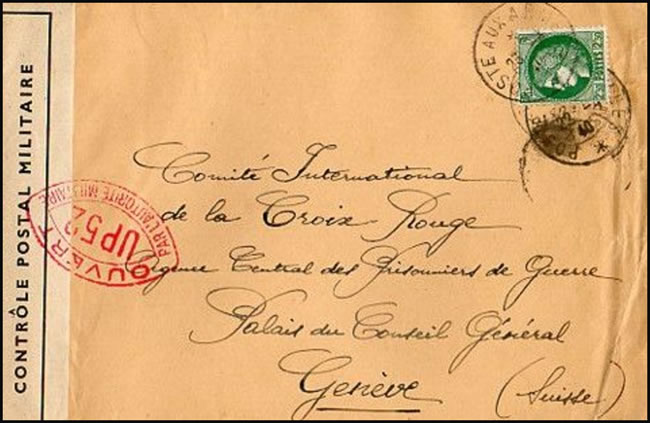 CONTRÔLE POSTAL MILITAIRE
OUVERT
PAR L'AUTORITÉ MILITAIRE
UP52
POSTE AUX ARMÉES
Comité International
de la Croix Rouge
Agence Central des Prisonniers de Guerre
Palais du Conseil Général
Genève (Suisse)